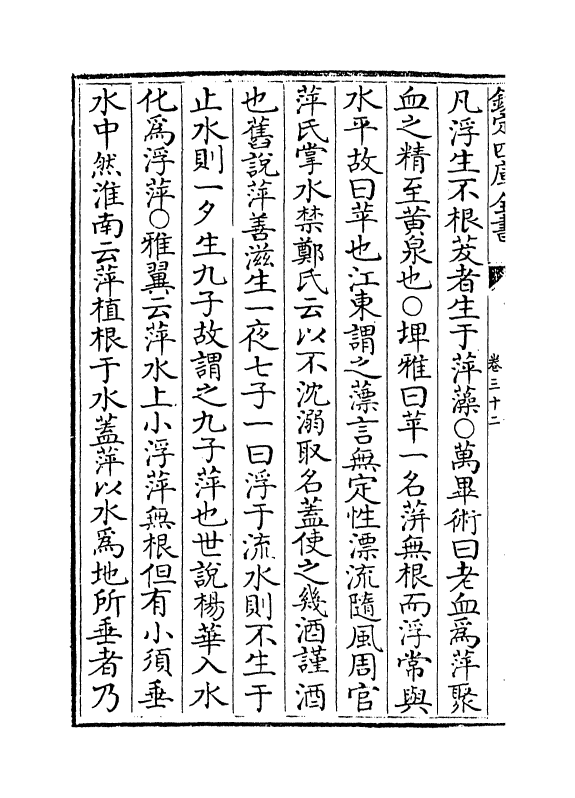 欽定四庫全書
卷三十二
凡浮生不根茇者生于萍藻○萬畢術曰老血為萍聚
血之精至黄泉也○埤雅曰苹一名蓱無根而浮常與
水平故曰苹也江東謂之薸言無定性漂流隨風周官
萍氏掌水禁鄭氏云以不沈溺取名蓋使之幾酒謹酒
也舊說萍善滋生一夜七子一曰浮于流水則不生于
止水則一夕生九子故謂之九子萍也世說楊華入水
化為浮萍○雅翼云萍水上小浮萍無根但有小須垂
水中然淮南云萍植根于水蓋萍以水為地所垂者乃